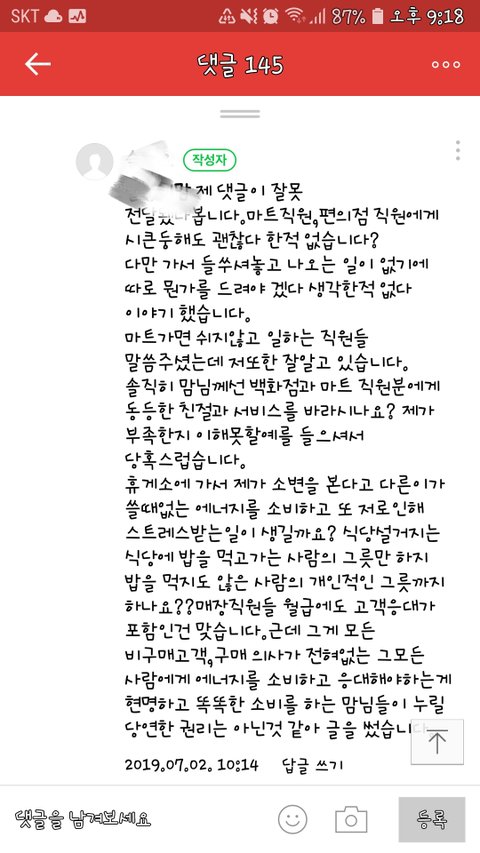 SKT 87% 오후 9:18
댓글 145
작성자
제 댓글이 잘못
전달됐나봅니다.마트직원,편의점 직원에게
시큰둥해도 괜찮다 한적 없습니다?
다만 가서 들쑤셔놓고 나오는 일이 없기에
따로 뭔가를 드려야 겠다 생각한적 없다
이야기 했습니다.
마트가면 쉬지않고 일하는 직원들
말씀주셨는데 저또한 잘알고 있습니다.
솔직히 맘님께선 백화점과 마트 직원분에게
동등한 친절과 서비스를 바라시나요? 제가
부족한지 이해못할예를 들으셔서
당혹스럽습니다.
휴게소에 가서 제가 소변을 본다고 다른이가
쓸때없는 에너지를 소비하고 또 저로인해
스트레스받는일이 생길까요? 식당설거지는
식당에 밥을 먹고가는 사람의 그릇만 하지
밥을 먹지도 않은 사람의 개인적인 그릇까지
하나요??매장직원들 월급에도 고객응대가
포함인건 맞습니다.근데 그게 모든
비구매고객,구매 의사가 전혀없는 그모든
사람에게 에너지를 소비하고 응대해야하는게
현명하고 똑똑한 소비를 하는 맘님들이 누릴
당연한 권리는 아닌것 같아 글을 썼습니다
2019.07.02. 10:14 답글 쓰기
댓글을 남겨보세요 등록